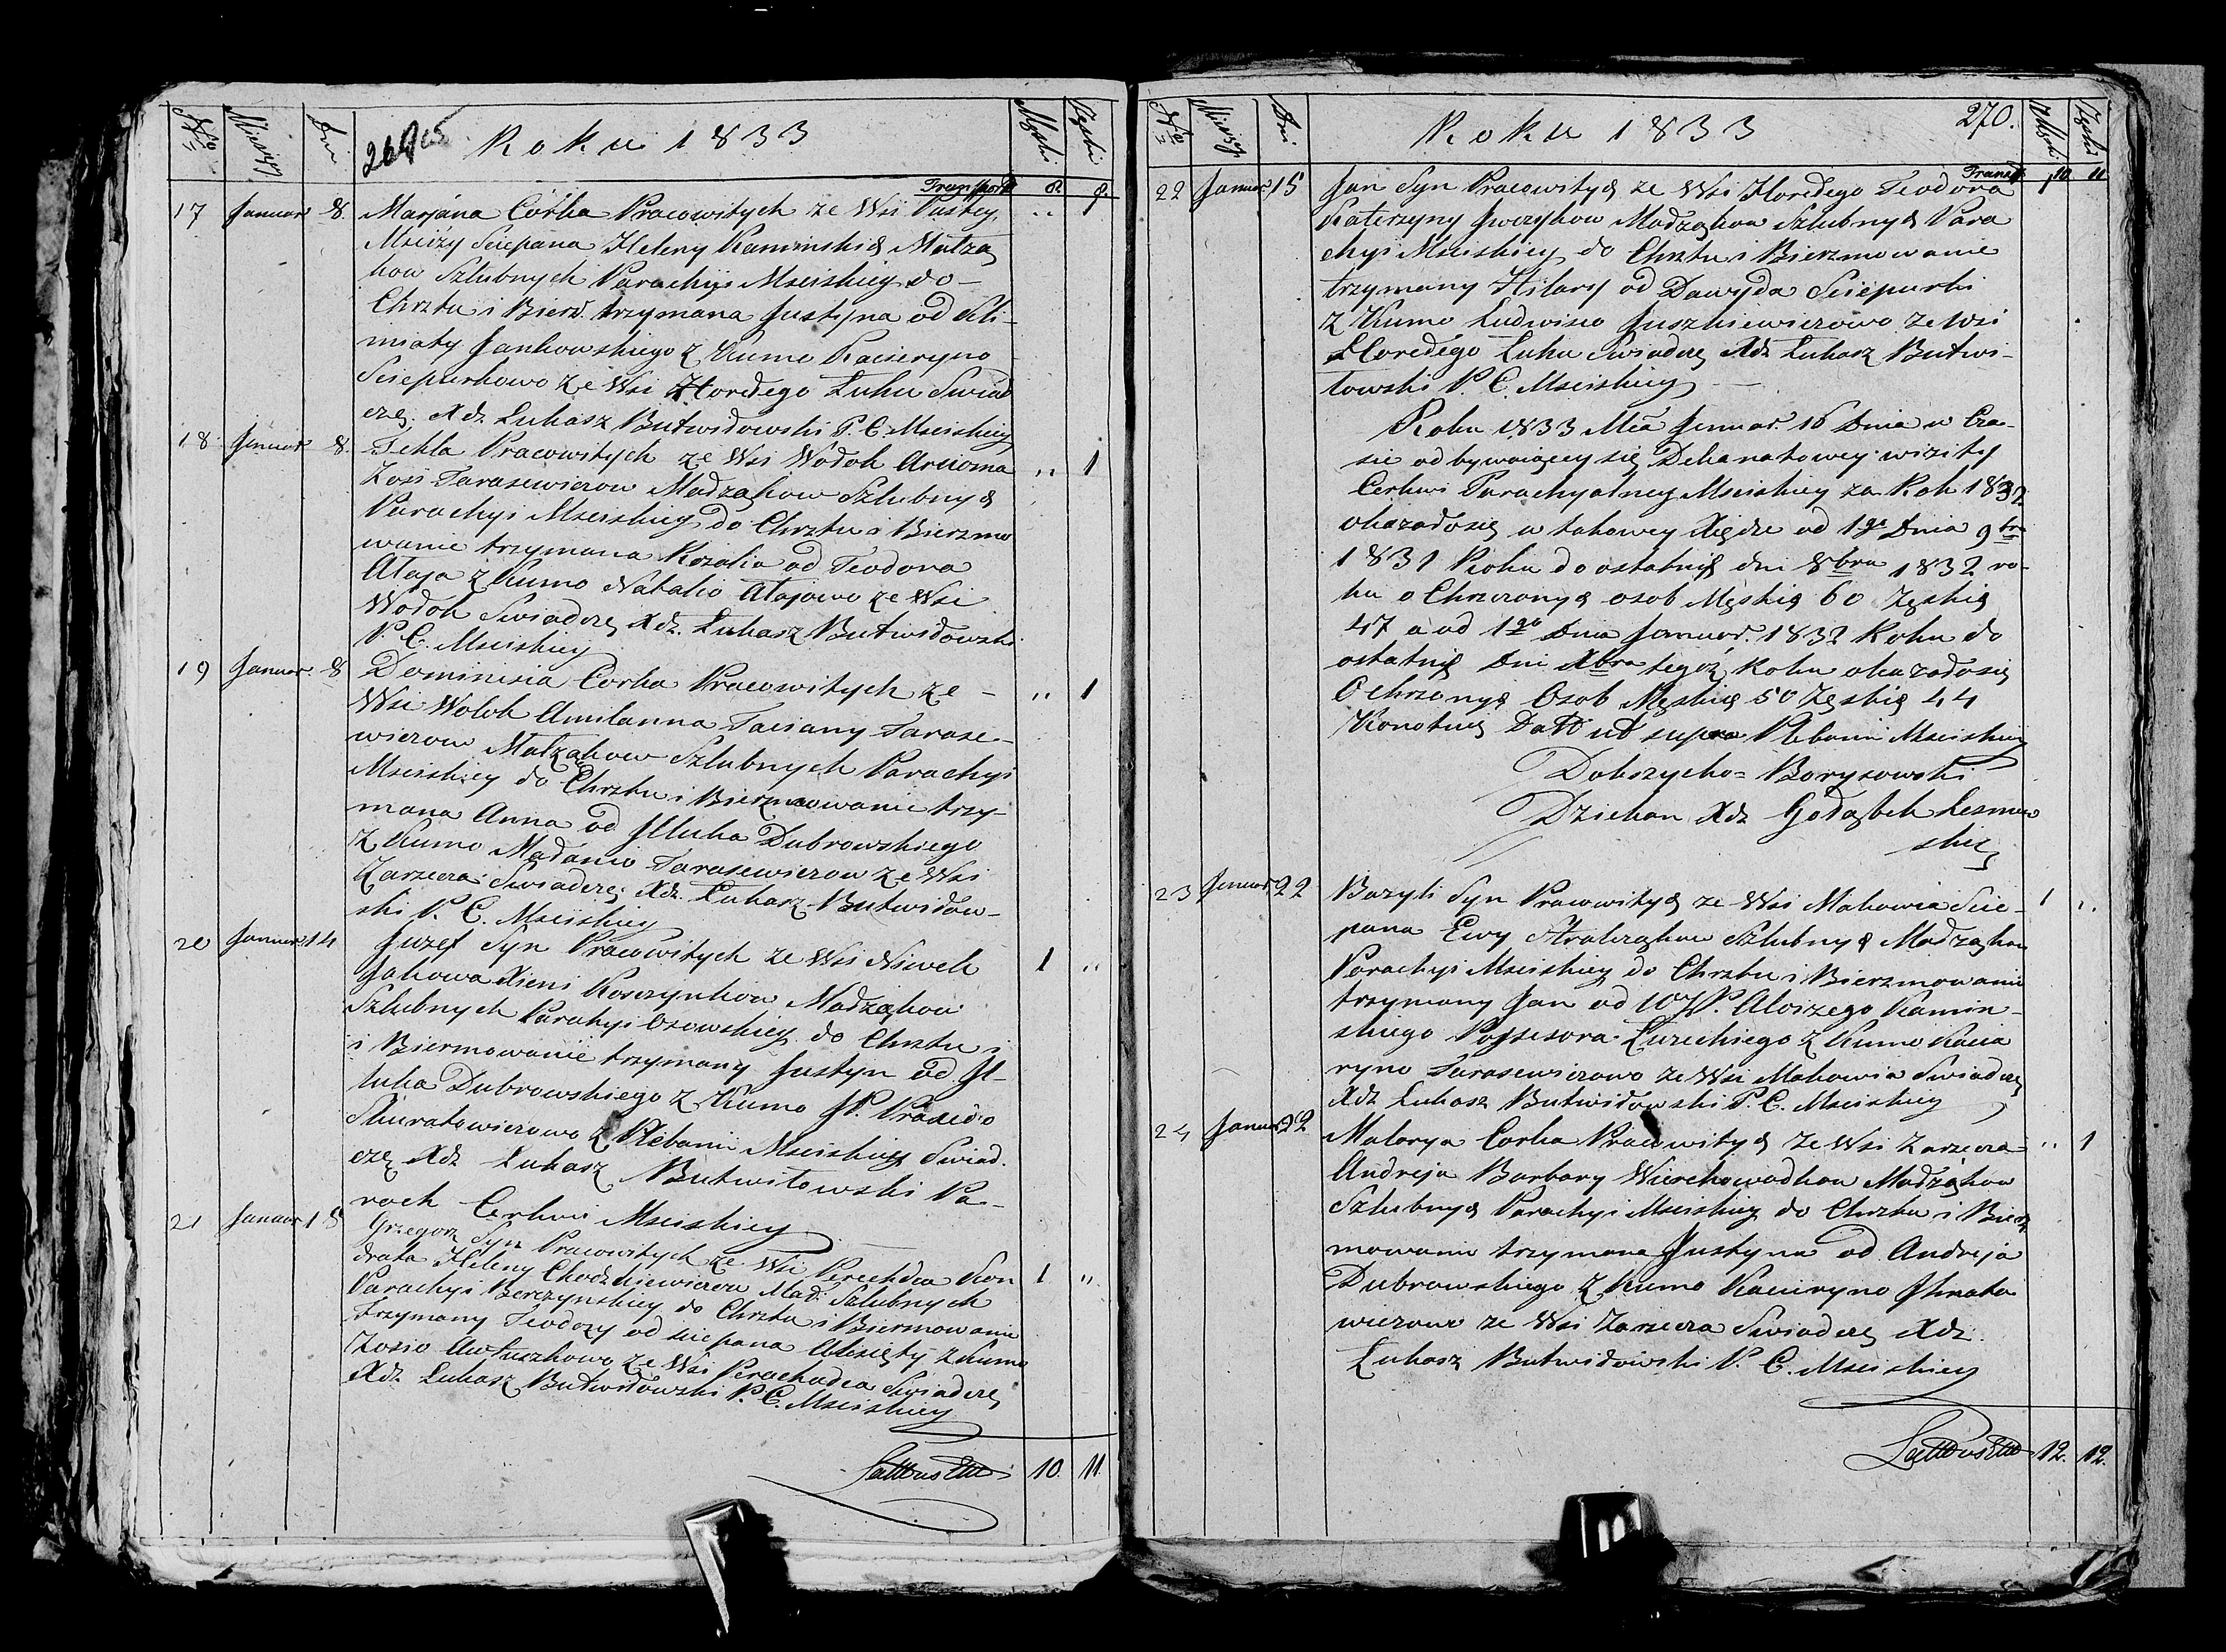 No Miesiąc Dni
Roku 1833
Męski Żęski
Transport 8. 8.
17 Januar 8. Marjana Córka Pracowitych ze Wsi Pustey
Mściży Sciepana Heleny Kaminskich Małżą
kow Szlubnych Parachyi Msciskiey do
Chrztu i Bierz. trzymana Justyna od Kli-
miaty Jankowskiego z Kumo Kacieryno
Sciepurkowo ze Wsi Horełego Łuhu Swiad
czę Xdz Łukasz Butwiłowski P. C. Msciskiey .. 1
18 Januar 8. Tekla Pracowitych ze Wsi Wołok Arcioma
Zosi Tarasewiczow Małżąkow Szlubnych
Parachyi Msciskiey do Chrztu i Bierzmo
wanie trzymana Rozalia od Teodora
Ataja z Kumo Natalio Atajowo ze Wsi
Wołok Swiadczę Xdz. Łukasz Butwiłowski
P. C. Msciskiey .. 1
19 Januar. 8 Dominisia Corka Pracowitych ze –
Wsi Wołok Amilanna Taciany Tarase-
wiczow Małżąkow Szlubnych Parachyi
Msciskiey do Chrztu i Bierzmowanie trzy-
mana Anna od Dubrowskiego
z Kumo Madanio Tarasewiczow ze Wsi
Zarzecza Swiadczę Xdz. Łukasz Butwiłow-
ski P. C. Msciskiey .. 1
20 Januar 14 Juzef Syn Pracowitych ze Wsi Niwek
Jakowa Xieni Kosczynkow Małżąkow
Szlubnych Parahyi Osowskiey do Chrztu i
i Biermowanie trzymany Justyn od
Dubrowskiego z Kumo JP. Praxedo
Skuratowiczowo z Plebanii Msciskiey Swiad.
czę Xdz Łukasz Butwiłowski Pa-
roch Cerkwi Mscisskiey 1 ..
21 Januar 15 Grzegorz Syn Pracowitych ze Wsi Perechdca Kon
drata Heleny Chodzkiewiczow Mał. Szlubnych
Parachyi Berezynskiey do Chrztu i Biermowanie
trzymany Teodozy od sciepana z Kumo
Zosio Awtuszkowo ze Wsi Perachodca Swiadczę
Xdz Łukasz Butwiłowski P. C. Mscisskiey 1 ..
Lattus 10 11
No Miesiąc Dni.
Roku 1833
270.
Męski Żęski
Transp. 10 11
22 Januar 15 Jan Syn Pracowitych ze Wsi Horełego Teodora
Katerzyny Małżąkow Szlubnych Para
chyi Mscisskiey do Chrztu i Bierzmowanie
trzymany Hilary od Dawyda Sciepurki
z Kumo Ludwisio Juszkiewiczowo ze Wsi
Horełego Łuhu Swiadczę Xdz Łukasz Butwi-
łowski P. C. Mscisskiey 1
Roku 1833 Mca Januar. 16 Dnia w Cza-
sie odbywaiącey się Dekanatowey wizity
Cerkwi Parachyalney Mscisskiey za Rok 1832
okazałosię w takowey Xiędze od 1go Dnia 9bra
1831 Roku do ostatnich dni 8bra 1832 ro-
ku o Chrzczonych osob Męskich 60 Żęskich
47 a od 1go Dnia Januar. 1832 Roku do
ostatnich Dni Xbra tegoż Roku okazałosię
Ochrzonych Osob Męskich 50 Żęskich 44
Konotuię Datt ut supra Plebanii Mscisskiey
Dokszycko = Borysowski
Dziekan Xdz Gołąbek
23 Januar 22 Bazyli Syn Pracowitych ze Wsi Makowia Scie-
pana Ewy Szlubnych Małżąkow
Parachyi Mscisskiey do Chrztu i Bierzmowanie
trzymany Jan od WJP. Aloizego Kamin-
skiego Possesora z Kumo Kacia
ryno Tarasewiczowo ze Wsi Makowia Swiadczę
Xdz Łukasz Butwiłowski P. C. Mscisskiey 1 ..
24 Januar 22 Malarya Corka Pracowitych ze Wsi Zarzecza
Andreja Barbary Wierchowodkow Małżąkow
Szlubnych Parachyi Mscisskiey do Chrztu i Bierz
mowanie trzymana Justyna od Andreja
Dubrowskiego z Kumo Kacieryno Ihnato
wiczowo ze Wsi Zarzecza Swiadczę Xdz.
Łukasz Butwiłowski P. C. Mscisskiey .. 1
Lattus 12. 12.